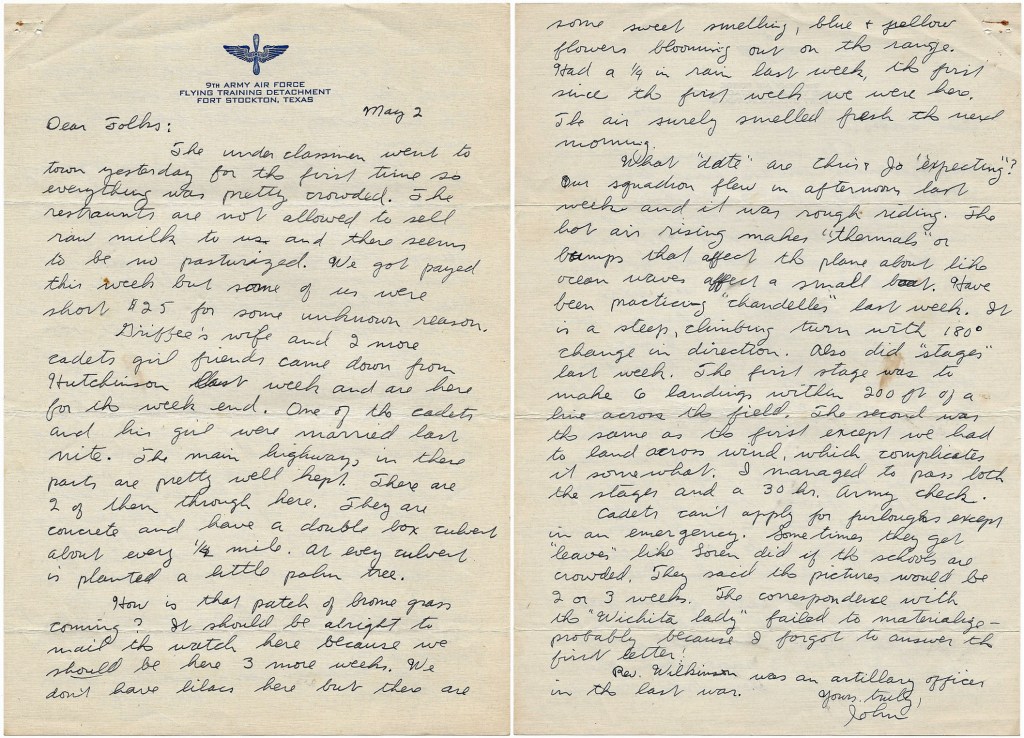 9TH ARMY AIR FORCE
FLYING TRAINING DETACHMENT
FORT STOCKTON, TEXAS
May 2
Dear Folks:
The under classmen went to
town yesterday for the first time so
everything was pretty crowded. The
restraunts are not allowed to sell
raw milk to us and there seems
to be no pasturized. We got payed
this week but some of us were
short $25 for some unknown reason.
Griffee's wife and 2 more
cadets girl friends came down from
Hutchinson last week and are here
for the week end. One of the cadets
and his girl were married last
nite. The main highways in these
parts are pretty well kept. There are
2 of them through here. They are
concrete and have a double box culvert
about every 1/4 mile. At evey culvert
is planted a little palm tree.
How is that patch of brome grass
coming? It should be alright to
mail the watch here because we
should be here 3 more weeks. We
don't have lilacs here but there are
some sweet smelling, blue & yellow
flowers blooming out on the range.
Had a 1/4 in rain last week, the first
since the first week we were here.
The air surely smelled fresh the next
morning.
What "date" are Chris & Jo "expecting"?
Our squadron flew in afternoon last
week and it was rough riding. The
hot air rising makes "thermals" or
bumps that affect the plane about like
ocean waves affect a small boat. Have
been practicing "chandelles" last week. It
is a steep, climbing turn with 180°
change in direction. Also did "stages"
last week. The first stage was to
make 6 landings within 200 ft of a
line across the field. The second was
the same as the first except we had
to land across wind, which complicates
it somewhat. I managed to pass both
the stages and a 30 hr. Army check.
Cadets can't apply for furloughs except
in an emergency. Sometimes they get
"leaves" like Loren did if the schools are
crowded. They said the pictures would be
2 or 3 weeks. The correspondence with
the "Wichita lady" failed to materialize-
probably because I forgot to answer the
first letter!
Rev. Wilkinson was an artillary officer
in the last war.
Yours truly,
John